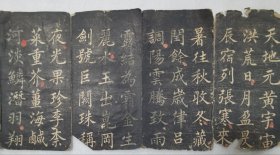 天地元黃宇宙
洪荒日月盈昃
辰宿列張寒來
暑往秋收冬藏
閏餘成歲律呂
調陽雲騰致雨
露結為霜金生
麗水玉出崑岡
劍號巨闕珠稱
夜光果珍李柰
菜重芥薑海鹹
河淡鱗潛羽翔